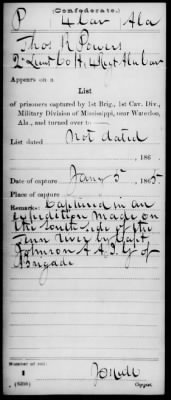 (Confederate.)
P 4 Cav Ala
Thos R Powers
2d Lieut Co H, 4 Reg't Ala Cav
Appears on a
List
of prisoners captured by 1st Brig., 1st Cav. Div.,
Military Division of Mississippi, near Waterloo,
Ala., and turned over to —
List dated Not dated
, 186 .
Date of capture Jany 5, 1865
Place of capture
Remarks: Captured in an
expedition made on
the south side of the
Tenn River by Capt
Johnson A A I G of
Brigade
Number of roll:
1
(639b)
Copyist.